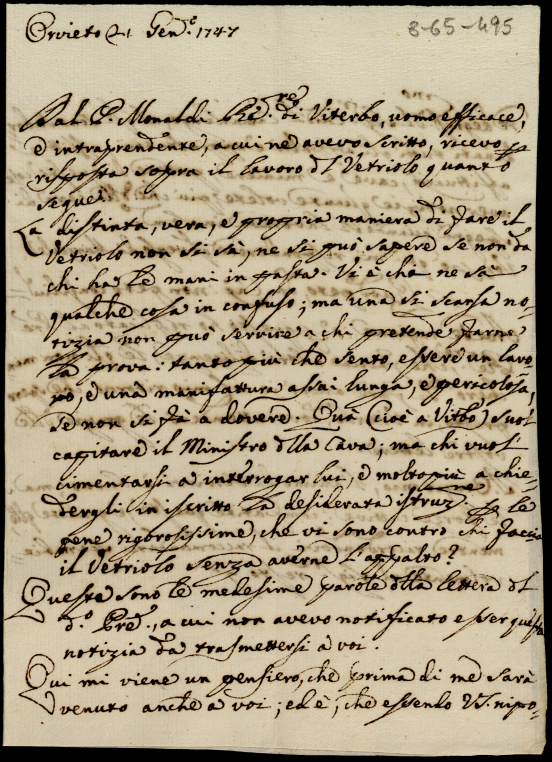 Orvieto 21 Gen.e 1747
8-65-495
Dal P. Monaldi Re.re di Viterbo, uomo efficace,
e intraprendente, a cui ne avevo scritto, ricevo p
risposta sopra il lavoro dl Vetriolo quanto
segue:
La distinta, vera, e propria maniera di fare il
Vetriolo non si sà, ne si può sapere se non da
chi ha le mani in pasta. Vi è chi ne sà
qualche cosa in confuso; ma una si scarsa no-
tizia non può servire a chi pretende farne
la prova: tanto più che sento, essere un lavo-
ro, e una manifattura assai lunga, e pericolosa,
se non si fà a dovere. Quà (cioè a Vitbo) suol
capitare il Ministro dlla Cava; ma chi vuol
cimentarsi à interrogar lui, e molto più a chie-
dergli in iscritto la desiderata istruzne p le
pene rigorosissime, che vi sono contro chi faccia
il Vetriolo senza averne l'appalto?
Queste sono le medesime parole dlla lettera dl
d.o Pre, a cui non avevo notificato esser questa
notizia da trasmettersi à voi.
Qui mi viene un pensiero, che prima di me sarà
venuto anche a voi; ed è, che essendo VS. nipo-